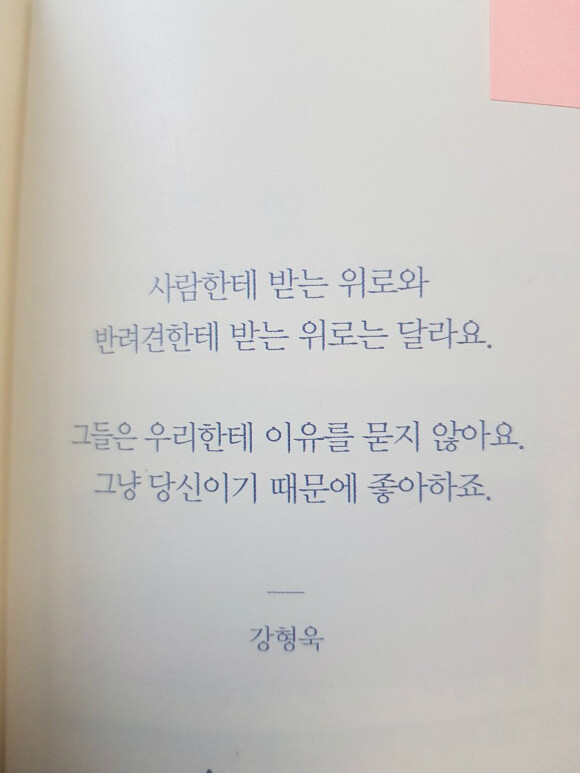 사람한테 받는 위로와
반려견한테 받는 위로는 달라요.
그들은 우리한테 이유를 묻지 않아요.
그냥 당신이기 때문에 좋아하죠.
강형욱